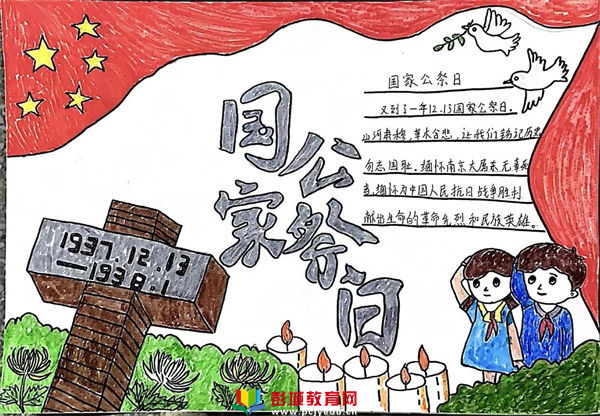 国家公祭日
国家公祭日
又到了一年12.13国家公祭日.
山河肃穆,草木含悲,让我们铭记历史
勿忘国耻.缅怀南京大屠杀无辜死
者,缅怀为中国人民抗日战争胜利
献出生命的革命先烈和民族英雄。
1937.12.13
—1938.1
彭城教育网
www.pcjyedu.cn